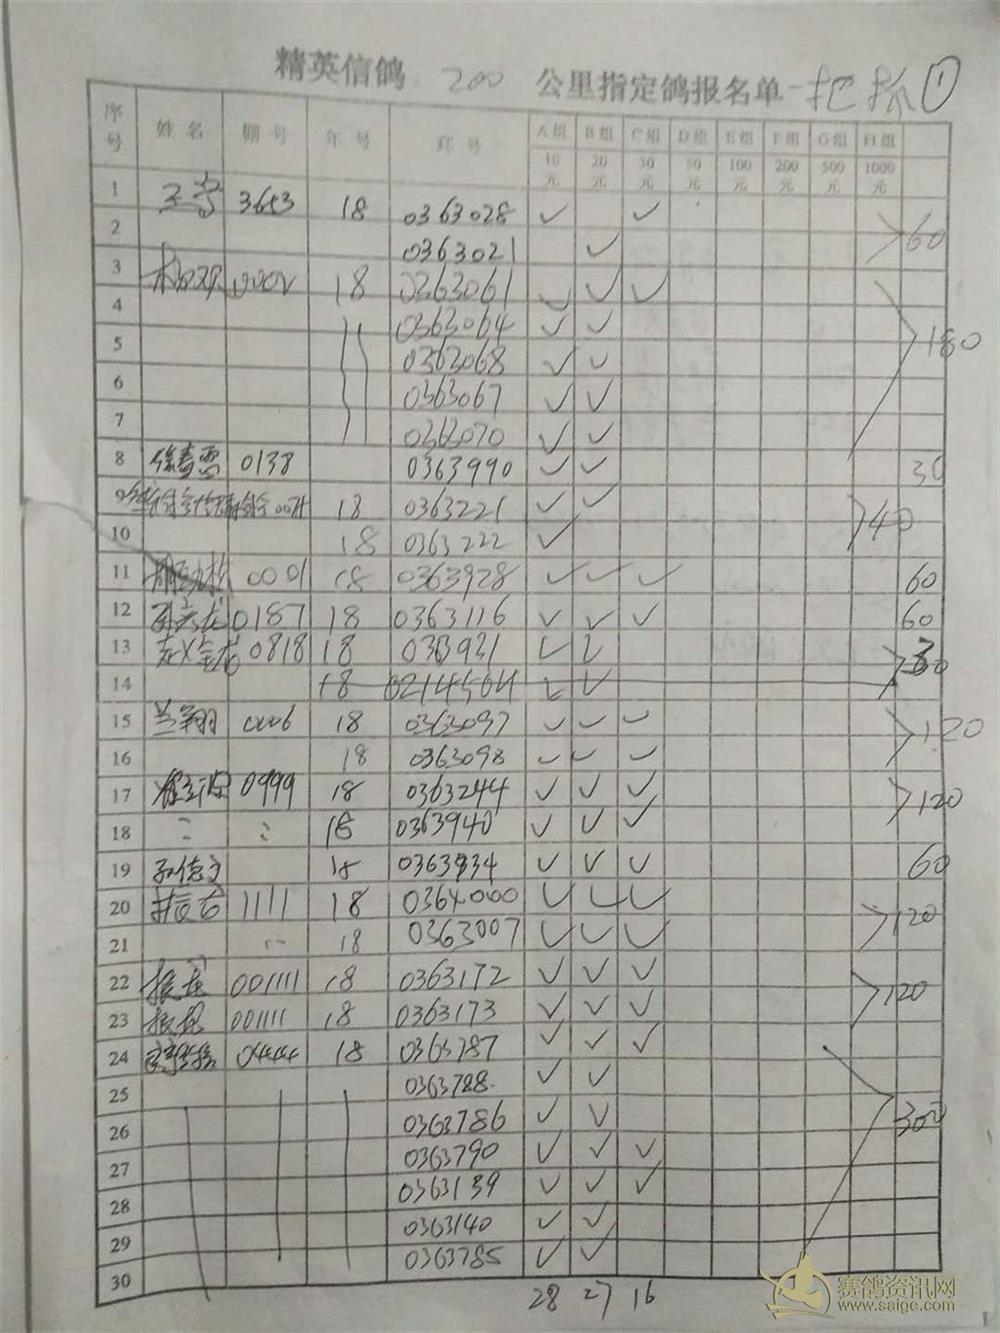 精英信鸽 200 公里指定鸽报名单 一把抓 ①
序号 姓名 棚号 年号 环号 A组 B组 C组 D组 E组 F组 G组 H组
10元 20元 30元 50元 100元 200元 500元 1000元
1 3653 18 0363028 ✓ ✓
2 0363021 ✓ 60
3 18 0363061 ✓ ✓ ✓
4 0363064 ✓ ✓
5 0363068 ✓ ✓ 180
6 0363067 ✓ ✓
7 0363070 ✓ ✓
8 0138 0363990 ✓ ✓ 30
9 18 0363221 ✓ ✓ 40
10 18 0363222 ✓
11 0001 18 0363928 ✓ ✓ ✓ 60
12 0187 18 0363116 ✓ ✓ ✓ 60
13 0818 18 ✓ ✓
14 18 0214504 ✓ ✓
15 兰翔 0006 18 0363097 ✓ ✓ ✓ 120
16 18 0363098 ✓ ✓ ✓
17 0999 18 0363244 ✓ ✓ ✓ 120
18 18 0363940 ✓ ✓ ✓
19 孙德文 18 0363934 ✓ ✓ ✓ 60
20 1111 18 0364000 ✓ ✓ ✓ 120
21 18 0363007 ✓ ✓ ✓
22 001111 18 0363172 ✓ ✓ ✓ 120
23 001111 18 0363173 ✓ ✓ ✓
24 0444 18 0363787 ✓ ✓ ✓
25 0363788 ✓ ✓
26 0363786 ✓ ✓ 300
27 0363790 ✓ ✓ ✓
28 0363139 ✓ ✓ ✓
29 0363140 ✓ ✓
30 0363785 ✓ ✓
28 27 16
赛鸽资讯网
www.saigc.com